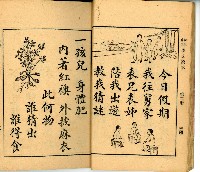 今日假期
我往舅家
表兄表姊
陪我出遊
教我猜謎
一孩兒 身體肥
內著紅旗 外披麻衣
此何物
誰猜出
誰得食